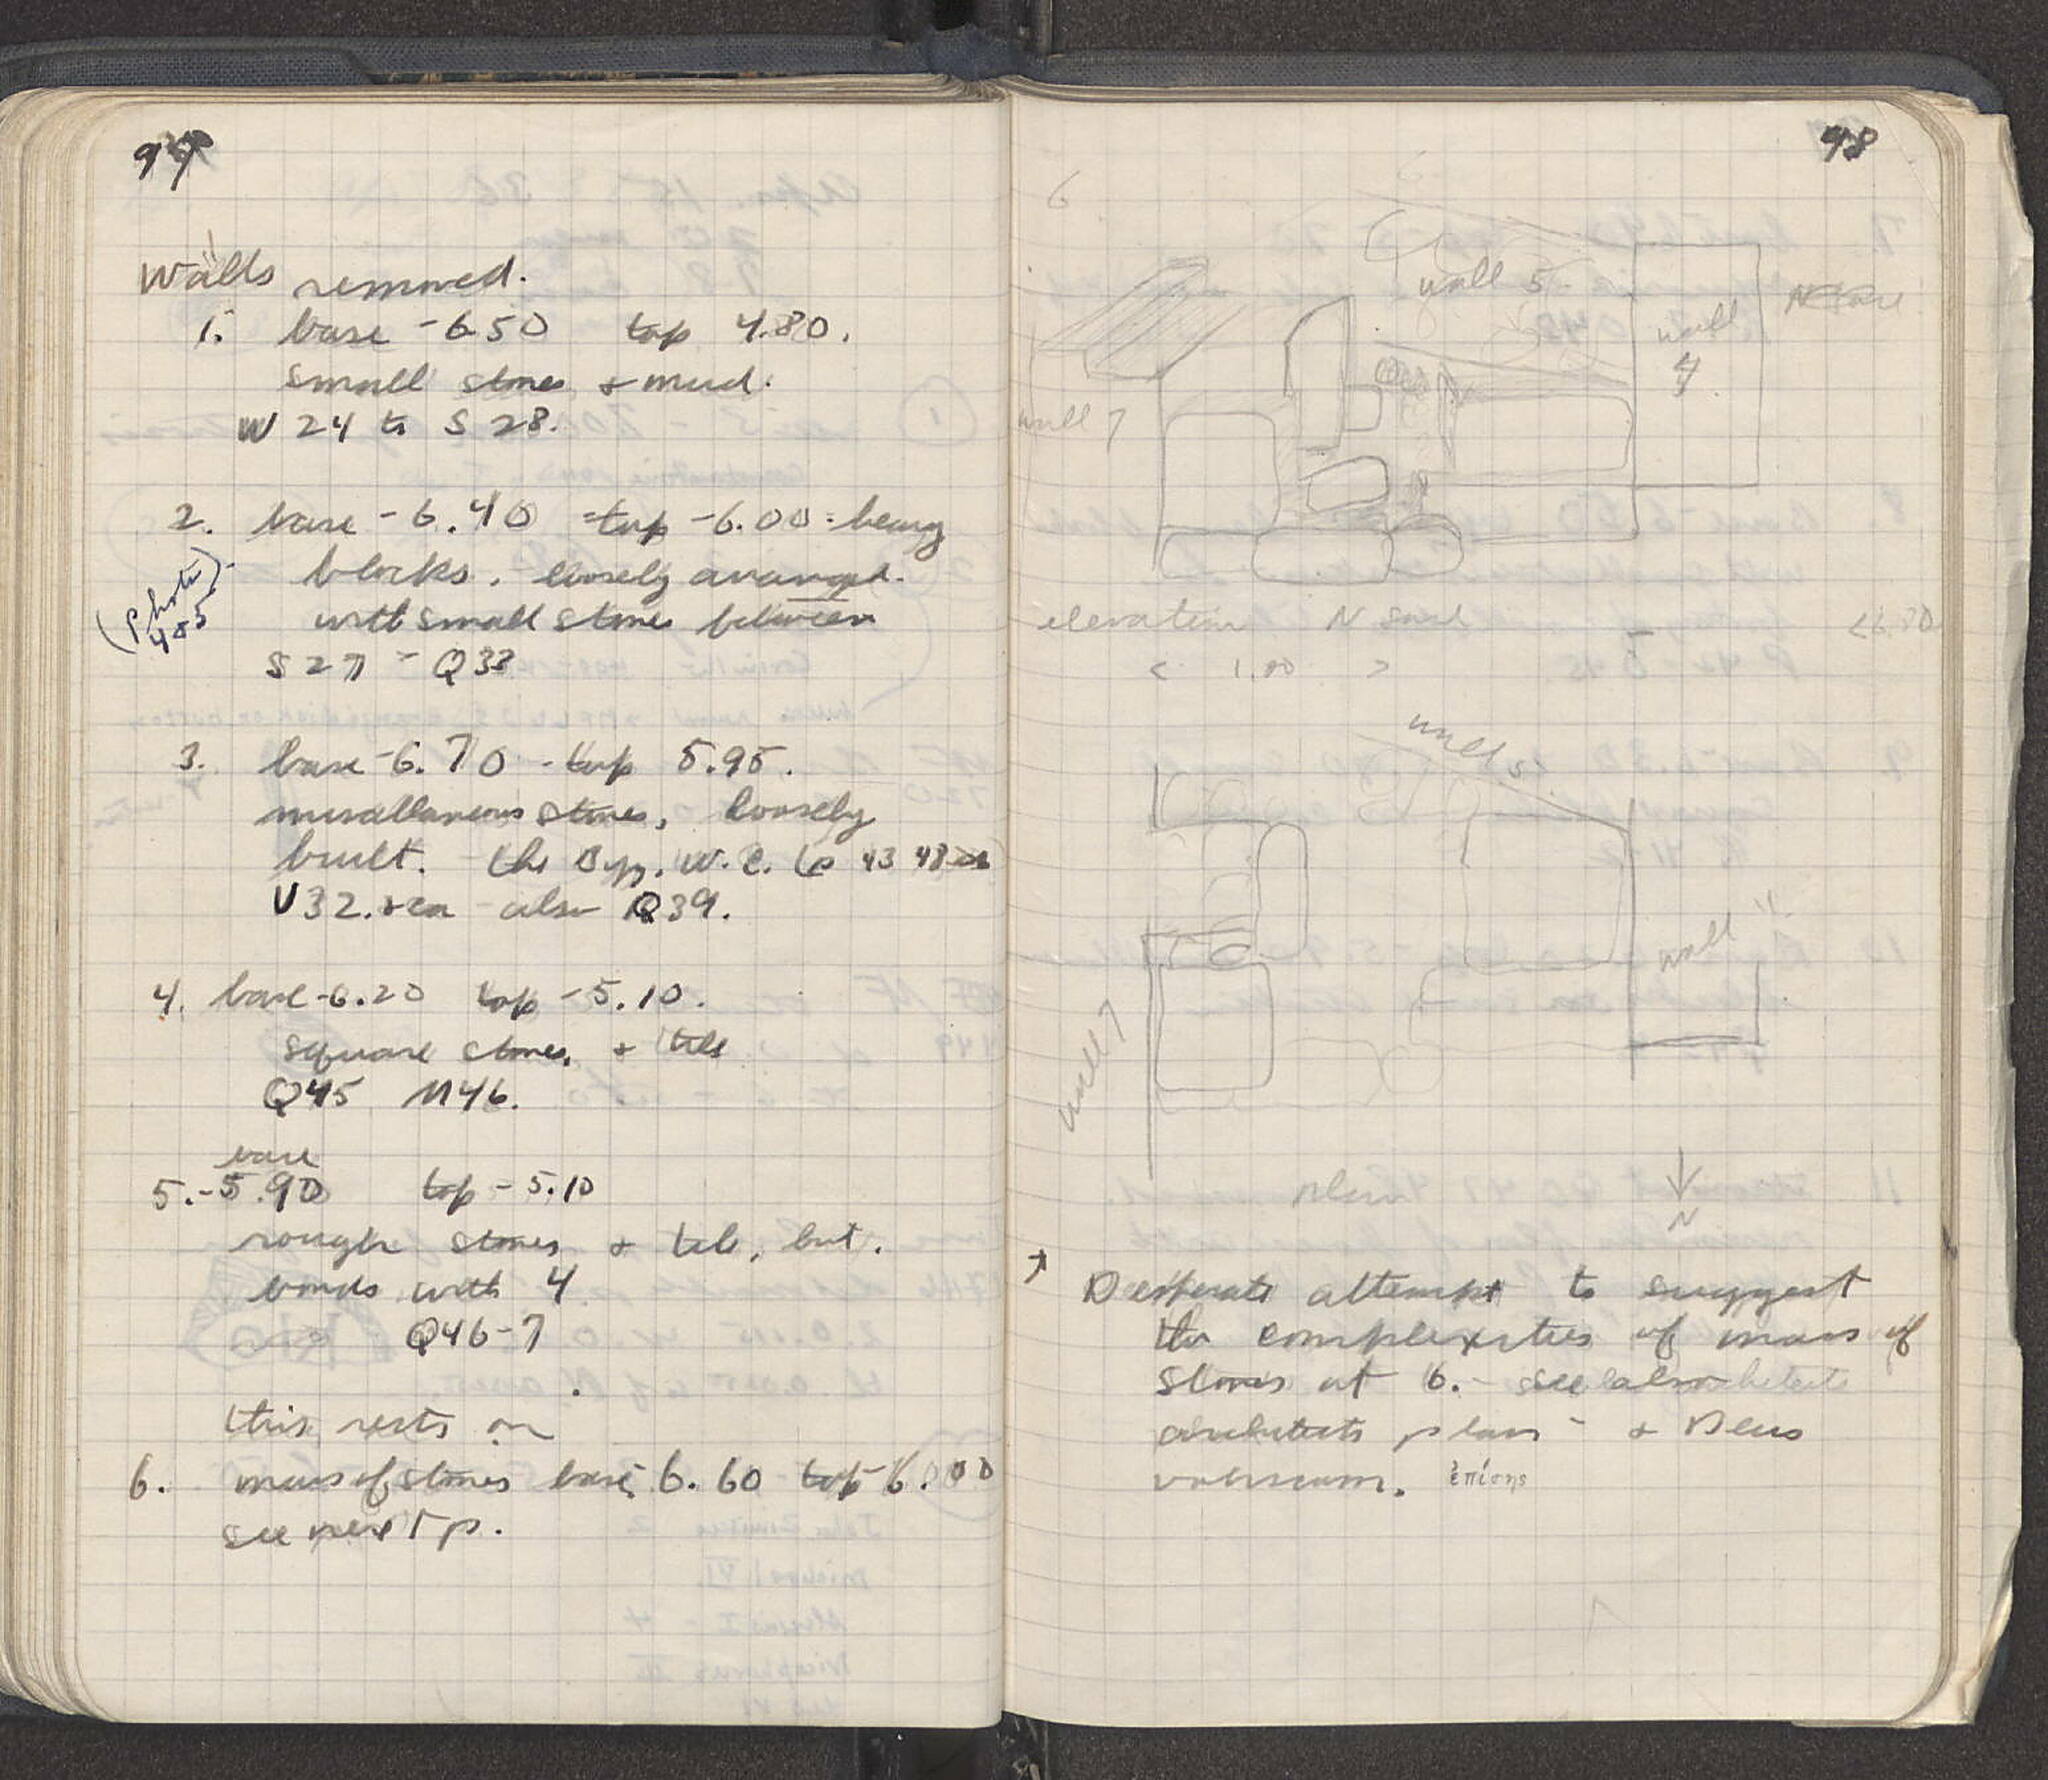 97
Walls removed.
1. base -6.50 top 4.80.
small stones & mud.
W 24 to S 28.
2. base -6.40 top -6.00 - heavy
blocks, loosely arranged
with small stones between
(Photo 405)
S 27 - Q 33
3. base -6.70 - top 5.95.
miscellaneous stones, loosely
built. - the Byz. W. C. (p 43 48
U32. also Q39.
4. base -6.20 top -5.10.
square stones, & tile
Q45 M46.
base
5. -5.90 top -5.10
rough stones & tile, but.
bonds with 4
Q46-7
this rests on
6. mass of stones base 6.60 top 6.00
see next p.
98
6
wall 5
wall
4
wall 7
elevation N
< 1.00 >
wall 5
wall
wall 7
plan
N
Desperate attempt to suggest
the complexities of mass of
stones at 6. - see also
architects plan - & Deus
vobiscum. ἐπίσης